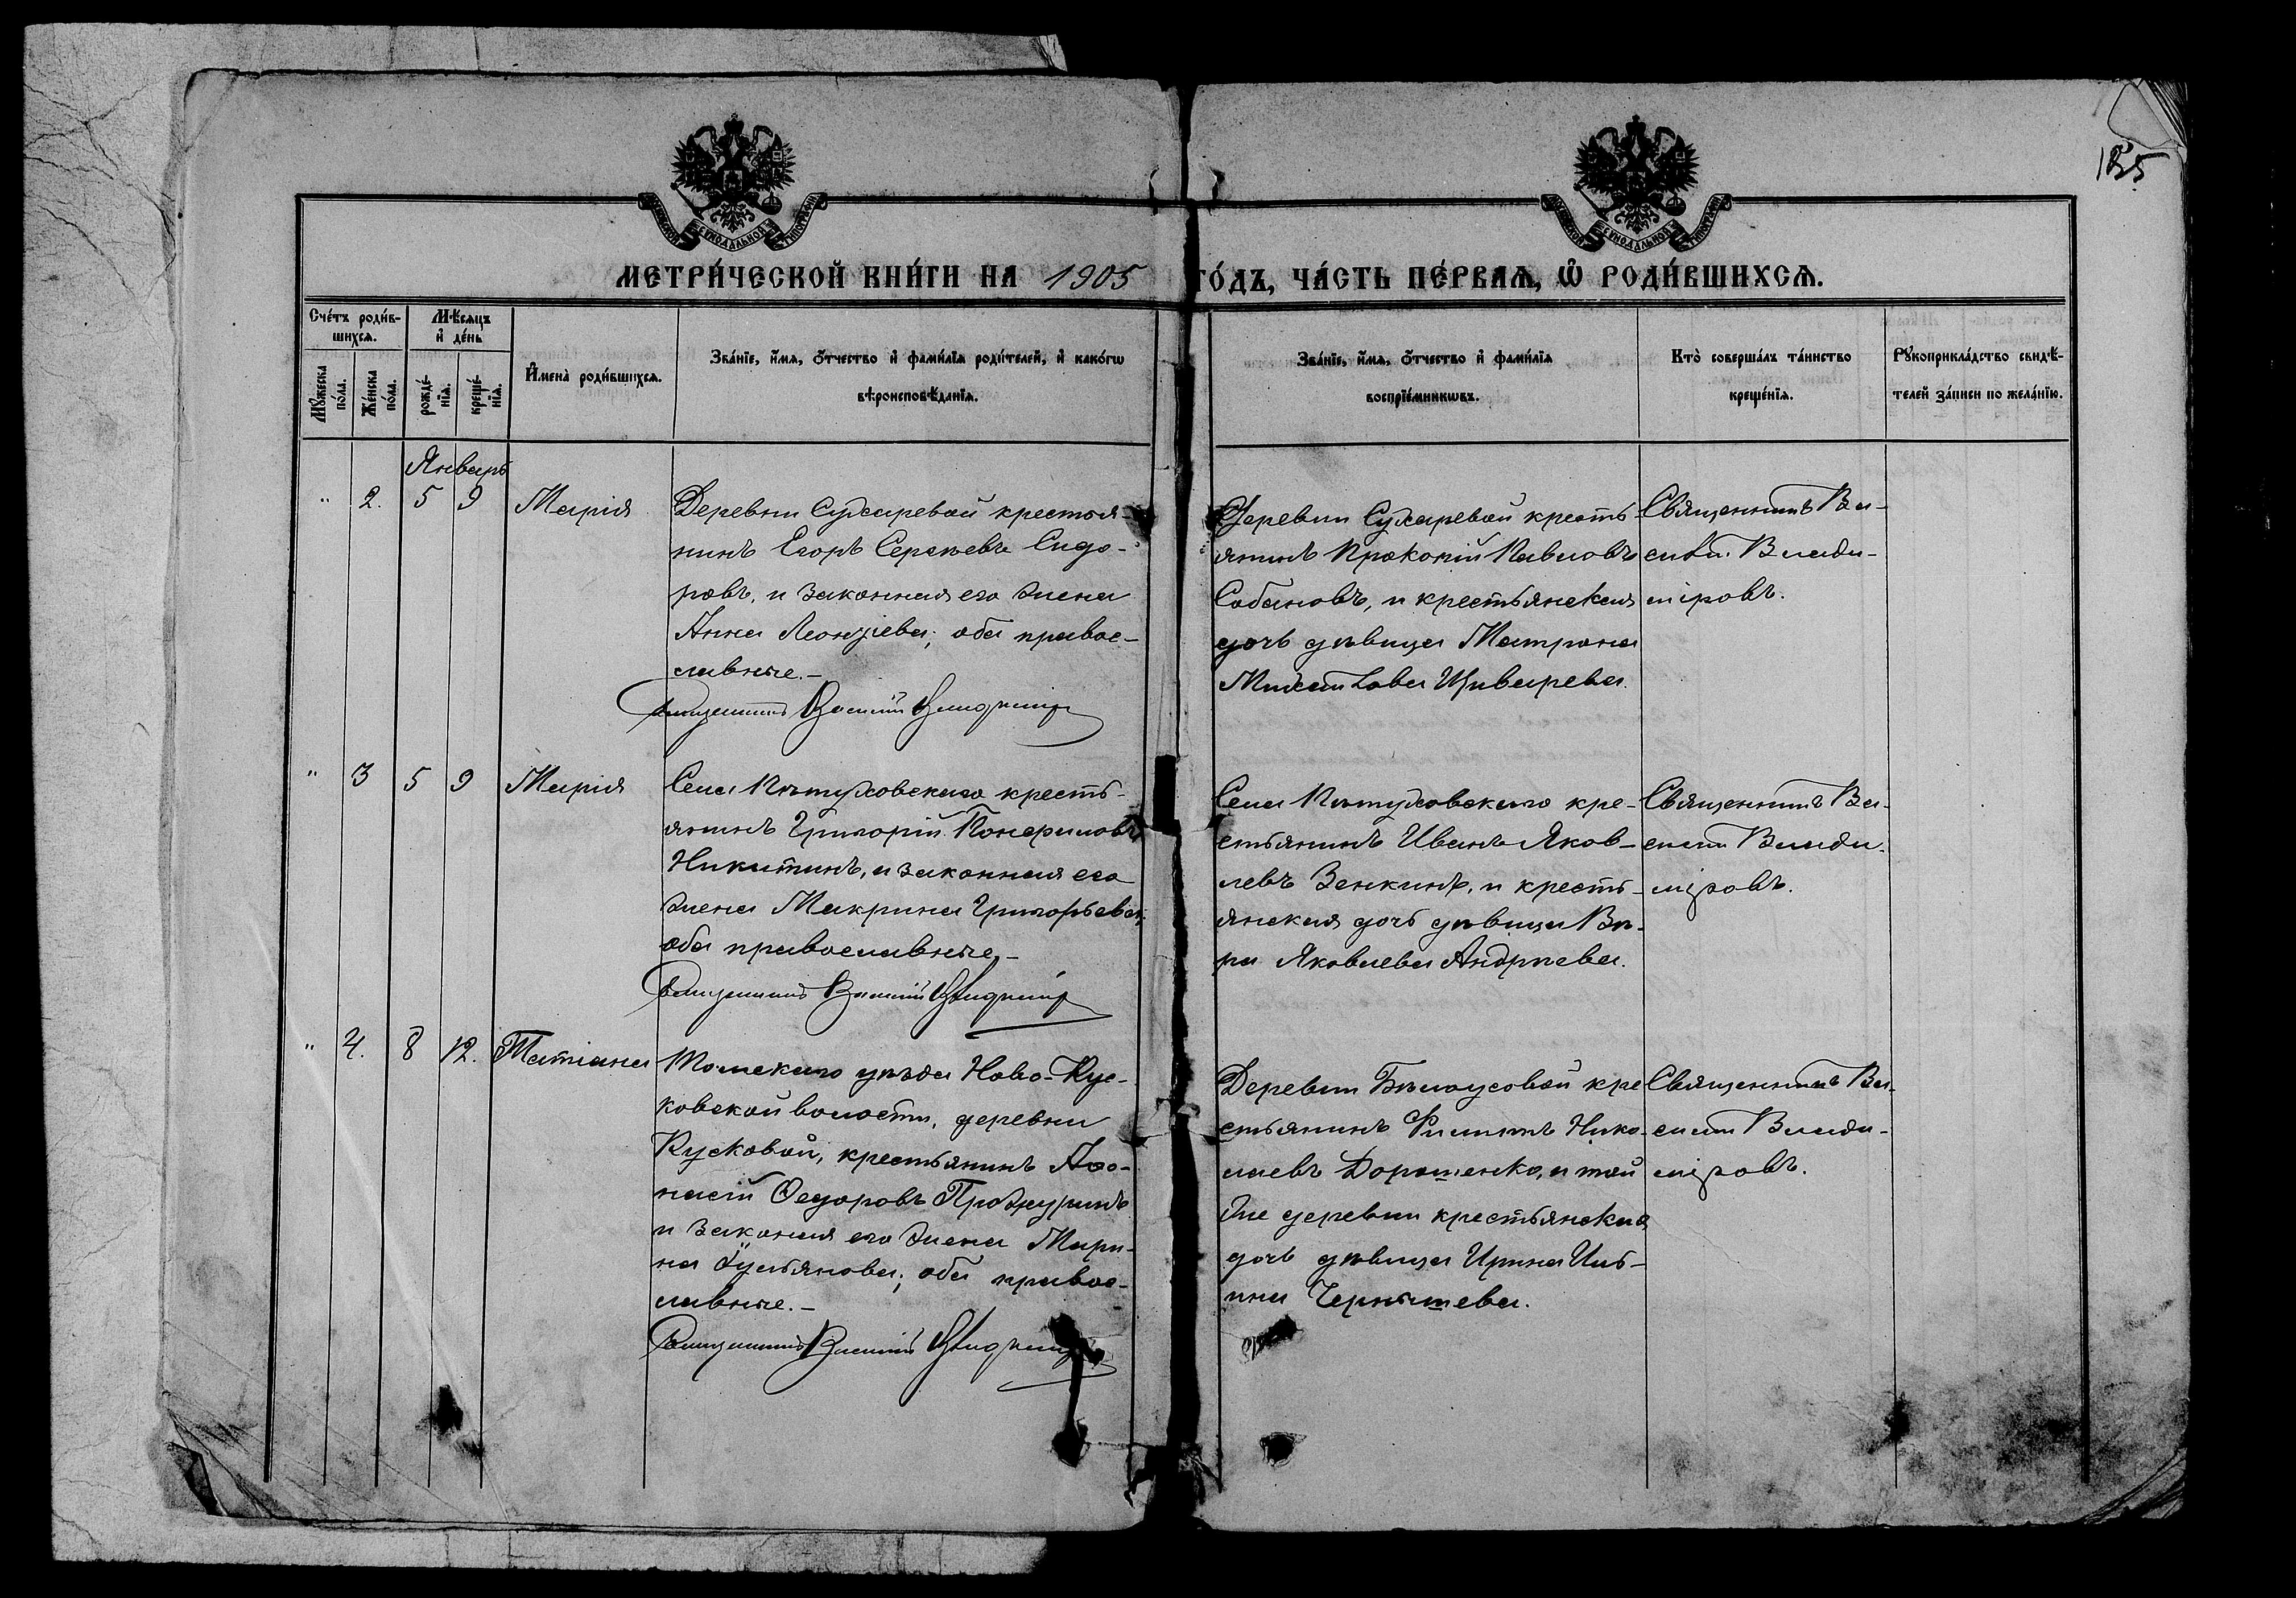 155
МОСКОВСКОЙ СѴНОДАЛЬНОЙ ТИПОГРАФІИ
МОСКОВСКОЙ СѴНОДАЛЬНОЙ ТИПОГРАФІИ
МЕТРИ́ЧЕСКОЙ КНИ́ГИ НА 1905 ГО́ДЪ, ЧА́СТЬ ПЕ́РВАѦ, Ѡ РОДИ́ВШИХСѦ.
Сче́тъ роди́в-
шихсѧ.
Мꙋ́жеска
по́ла.
Же́нска
по́ла.
Мѣ́сѧцъ
и҆ де́нь
рожде́-
нїѧ.
креще́-
нїѧ.
И҆мена̀ роди́вшихсѧ.
Зва́нїе, и҆́мѧ, ѻ҆́тчество и҆ фами́лїѧ роди́телей, и҆ како́гѡ
вѣроисповѣ́данїѧ.
Зва́нїе, и҆́мѧ, ѻ҆́тчество и҆ фами́лїѧ
воспрїе́мникѡвъ.
Кто̀ соверша́лъ та́инство
креще́нїѧ.
Рꙋкоприкла́дство свидѣ́-
телей за́писи по жела́нїю.
Январь
" 2. 5 9 Марія
Деревни Сухаревой крестья-
нинъ Егоръ Сергѣевъ Сидо-
ровъ, и законная его жена
Анна Леонтіева; оба правос-
лавные.-
Священникъ Василій Владиміровъ
Деревни Сухаревой кресть-
янинъ Прокопій Павловъ
Собановъ, и крестьянская
дочь дѣвица Матрона
Михайлова Шиварева.
Священникъ Ва-
силій Влади-
міровъ.
" 3 5 9 Марія
Села Пѣтуховскаго кресть-
янинъ Григорій Понфиловъ
Никитинъ, и законная его
жена Макрина Григорьева;
оба православные.-
Священникъ Василій Владиміровъ
Села Пѣтуховскаго кре-
стьянинъ Иванъ Яков-
левъ Зенкинъ, и кресть-
янская дочь дѣвица Вѣ-
ра Яковлева Андреева.
Священникъ Ва-
силій Влади-
міровъ.
" 4. 8 12. Татіана
Томскаго уѣзда Ново-Кус-
ковской волости, деревни
Кусковой, крестьянинъ Аѳо-
насій Ѳедоровъ Прожуринъ
и законая его жена Мари-
на Ульянова; оба правос-
лавные.-
Священникъ Василій Владиміровъ
Деревни Бѣлоусовой кре
стьянинъ Филиппъ Нико-
лаевъ Дорошенко, и той
же деревни крестьянская
дочь дѣвица Ирина Иль-
ина Чернышева.
Священникъ Ва-
силій Влади-
міровъ.